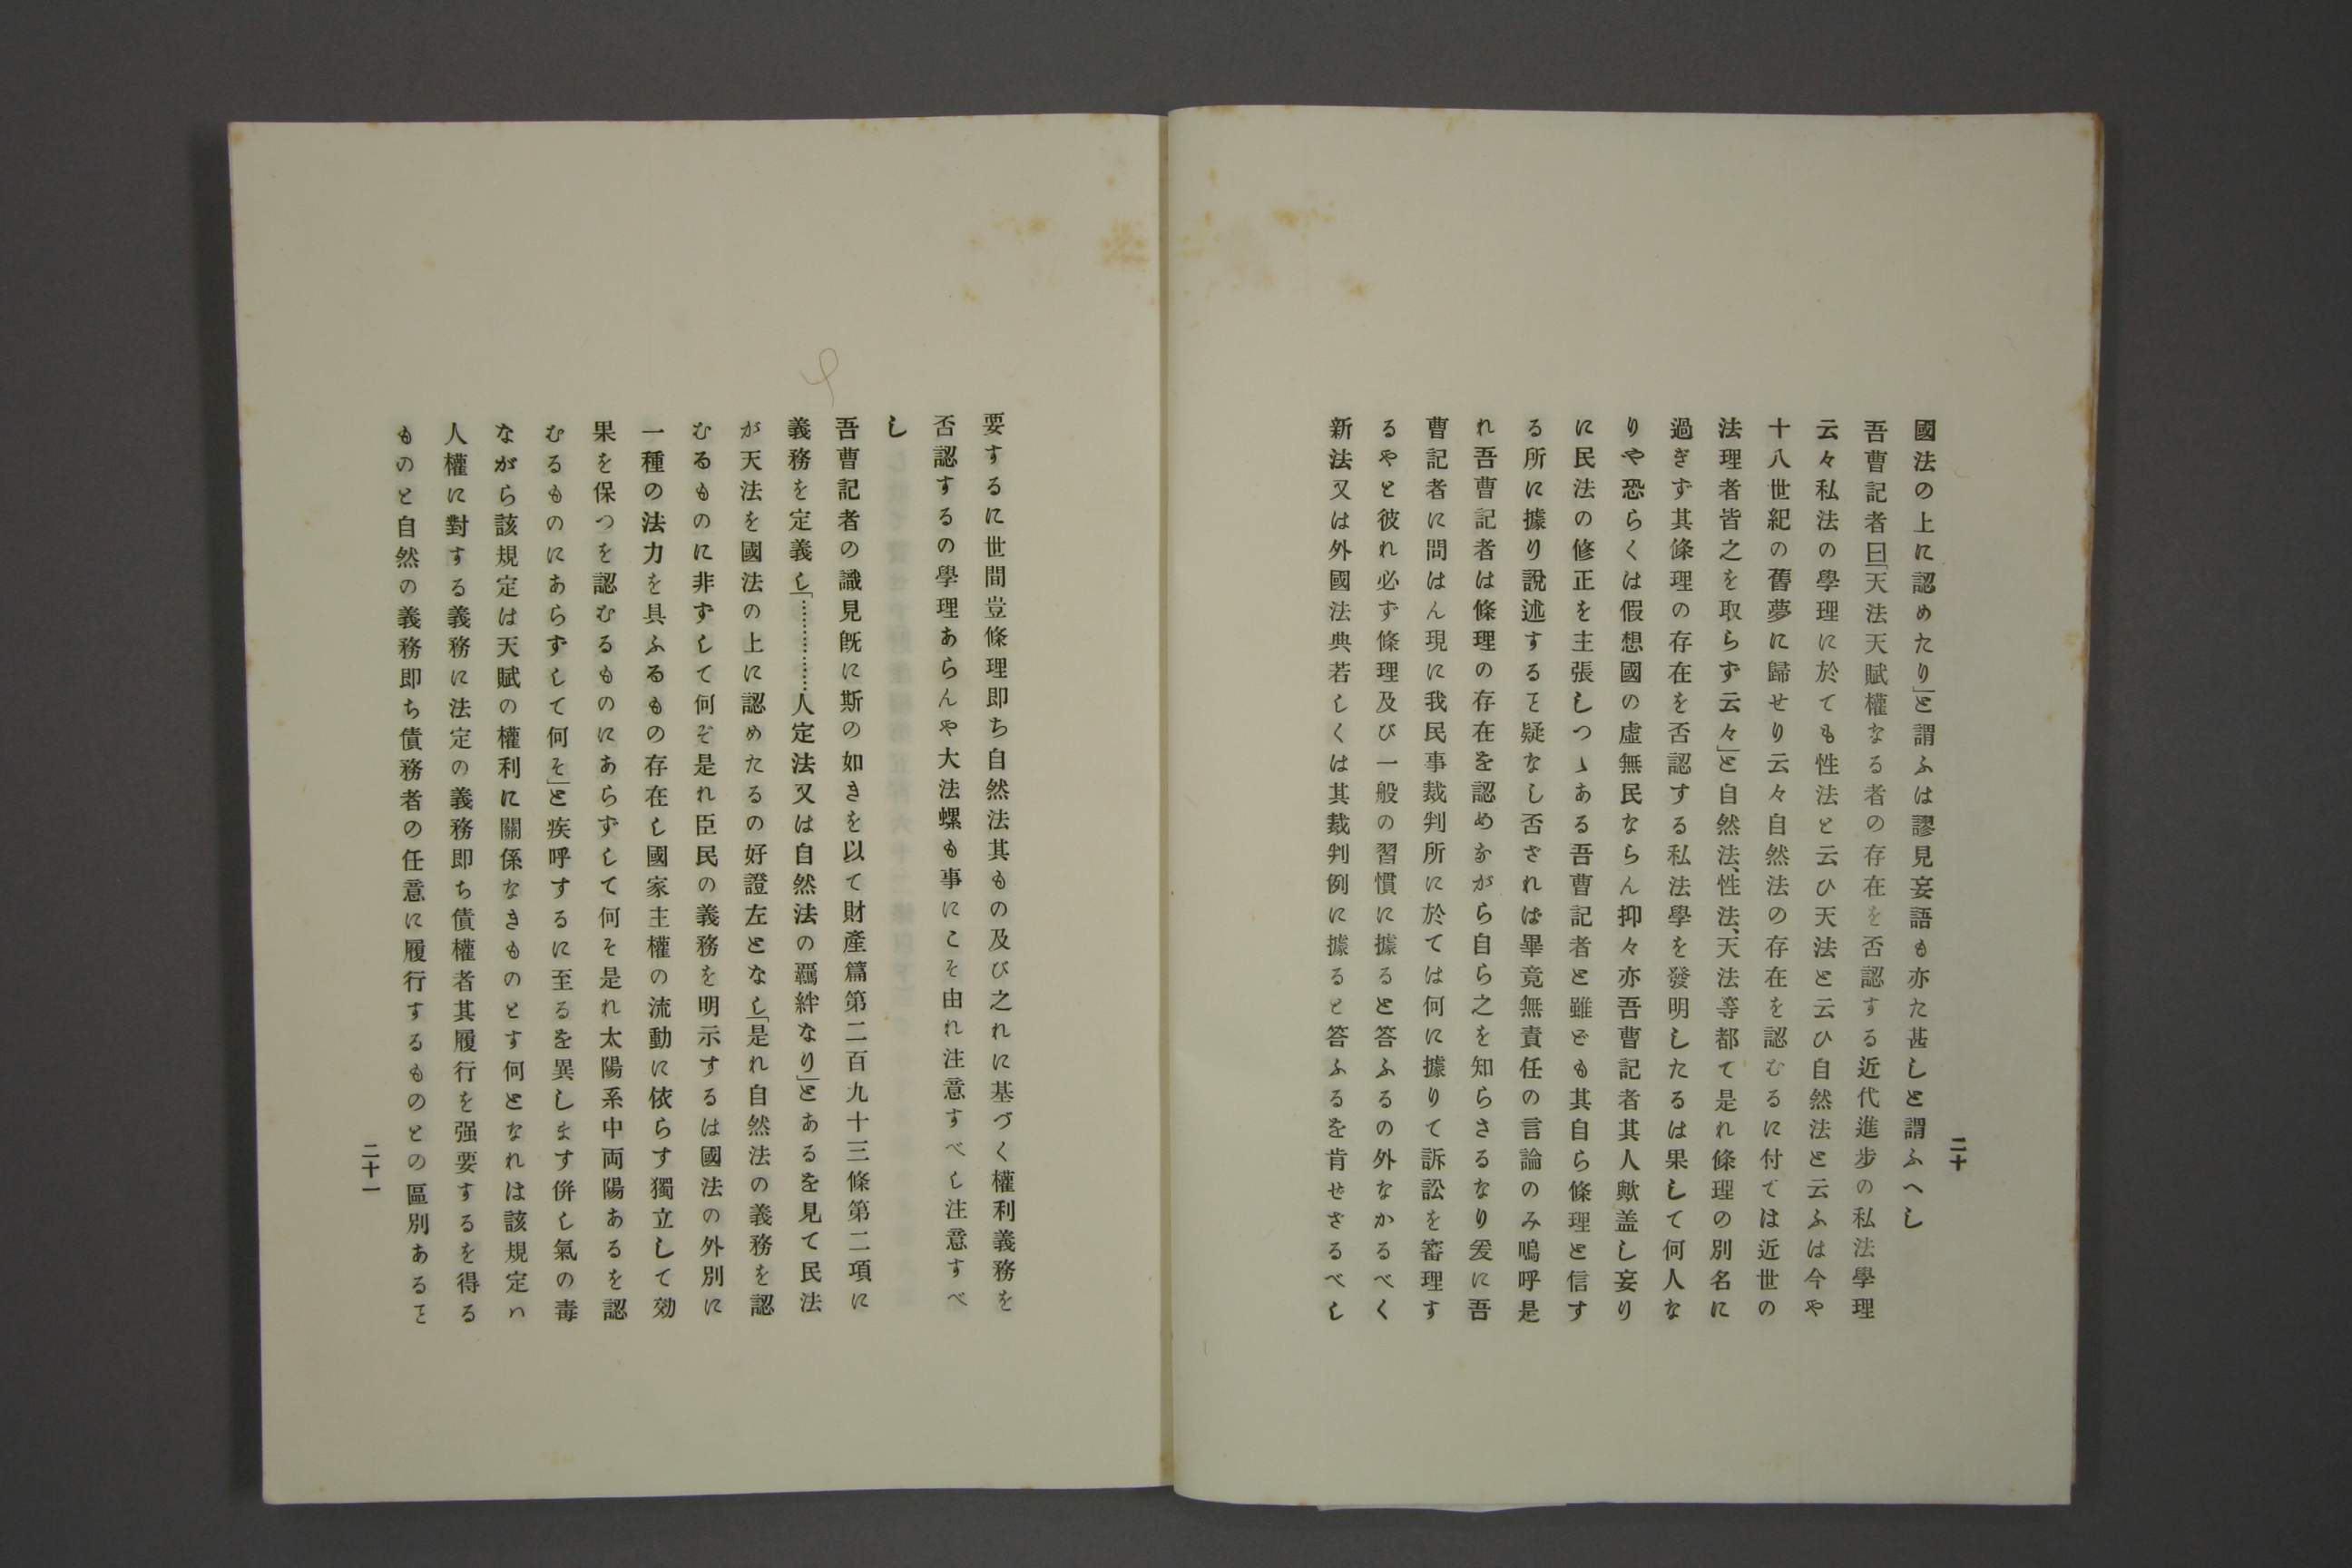 國法の上に認めたり」と謂ふは謬見妄語も亦た甚しと謂ふへし
吾曹記者曰「天法天賦權なる者の存在を否認する近代進步の私法學理
云々私法の學理に於ても性法と云ひ天法と云ひ自然法と云ふは今や
十八世紀の舊夢に歸せり云々自然法の存在を認むるに付ては近世の
法理者皆之を取らず云々」と自然法、性法、天法等都て是れ條理の別名に
過ぎず其條理の存在を否認する私法學を發明したるは果して何人な
りや恐らくは假想國の虛無民ならん抑々亦吾曹記者其人歟盖し妄り
に民法の修正を主張しつゝある吾曹記者と雖ども其自ら條理と信す
る所に據り說述するヿ疑なし否されば畢竟無責任の言論のみ嗚呼是
れ吾曹記者は條理の存在を認めながら自ら之を知らさるなり爰に吾
曹記者に問はん現に我民事裁判所に於ては何に據りて訴訟を審理す
るやと彼れ必ず條理及び一般の習慣に據ると答ふるの外なかるべく
新法又は外國法典若しくは其裁判例に據ると答ふるを肯ぜさるべし
二十
要するに世間豈條理即ち自然法其もの及び之れに基づく權利義務を
否認するの學理あらんや大法螺も事にこそ由れ注意すべし注意すべ
し
吾曹記者の識見既に斯の如きを以て財產篇第二百九十三條第二項に
義務を定義し「……………人定法又は自然法の羈絆なり」とあるを見て民法
が天法を國法の上に認めたるの好證左となし「是れ自然法の義務を認
むるものに非ずして何ぞ是れ臣民の義務を明示するは國法の外別に
一種の法力を具ふるもの存在し國家主權の流動に依らす獨立して効
果を保つを認むるものにあらずして何そ是れ太陽系中両陽あるを認
むるものにあらずして何そ」と疾呼するに至るを異します併し氣の毒
ながら該規定は天賦の權利に關係なきものとす何となれは該規定ハ
人權に對する義務に法定の義務即ち債權者其履行を强要するを得る
ものと自然の義務即ち債務者の任意に履行するものとの區別あるヿ
二十一